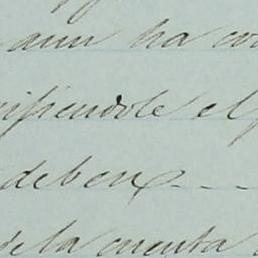 aun ha co
niendole el
deben - - -
de la cuenta